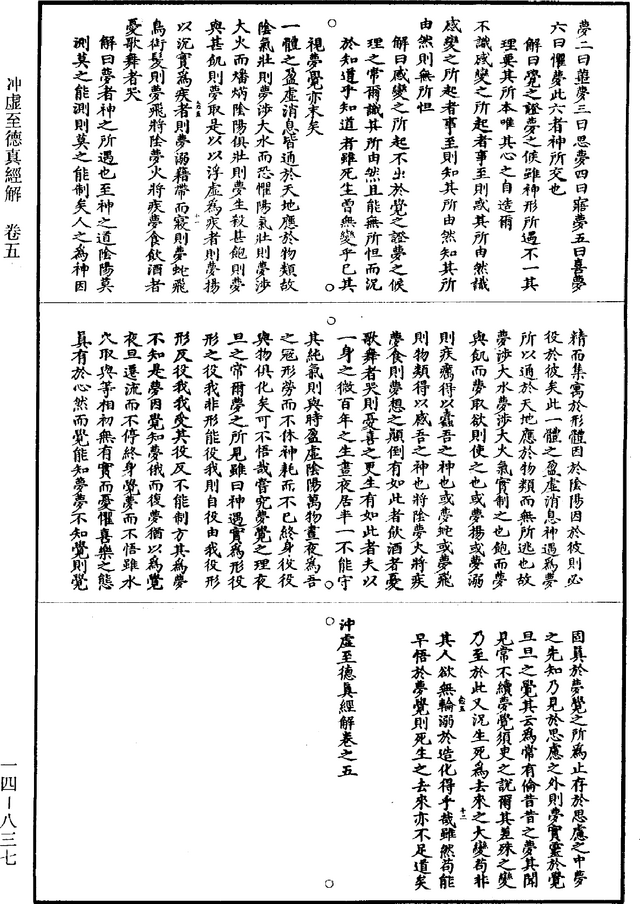 夢二曰蘁夢三曰思夢四曰寤夢五曰喜夢
六曰懼夢此六者神所交也
解曰覺之證夢之候雖神形所遇不一其
理要其所本唯其心之自造爾
不識感變之所起者事至則惑其所由然識
感變之所起者事至則知其所由然知其所
由然則無所怛
解曰感變之所起不出於覺之證夢之候
理之常爾識其所由然且能無所怛而況
於知道乎知道者雖死生曾無變乎已其
視夢覺亦末矣
一體之盈虛消息皆通於天地應於物類故
陰氣壯則夢涉大水而恐懼陽氣壯則夢涉
大火而燔焫陰陽俱壯則夢生殺甚飽則夢
與甚飢則夢取是以以浮虛為疾者則夢揚
以沉實為疾者則夢溺藉帶而寢則夢蛇飛
鳥銜髮則夢飛將陰夢火將疾夢食飲酒者
憂歌舞者哭
解曰夢者神之所遇也至神之道陰陽莫
測莫之能測則莫之能制矣人之為神因
精而集寓於形體因於陰陽因於彼則必
役於彼矣此一體之盈虛消息神遇為夢
所以通於天地應於物類而無所逃也故
夢涉大水夢涉大火氣實制之也飽而夢
與飢而夢取欲則使之也或夢揚或夢溺
則疾癘得以蠹吾之神也或夢蛇或夢飛
則物類得以感吾之神也將陰夢火將疾
夢食則夢想之顛倒有如此者飲酒者憂
歌舞者哭則憂喜之更生有如此者夫以
一身之微百年之生晝夜居半一不能守
其純氣則與時盈虛陰陽萬物晝夜為吾
之冠形勞而不休神耗而不已終身役役
與物俱化矣可不悟哉嘗究夢覺之理夜
旦之常爾夢之所見雖曰神遇實為形役
形之役我非形能役我則自役由我役形
形反役我我受其役反不能制方其為夢
不知是夢因覺知夢俄而復夢猶以為覺
夜旦遷流而不停終身覺夢而不悟雖水
火取與等相初無有實而憂懼喜樂之態
真有於心然而覺能知夢夢不知覺則覺
固真於夢覺之所為止存於思慮之中夢
之先知乃見於思慮之外則夢實靈於覺
旦旦之覺其云為常有倫昔昔之夢其聞
見常不續夢覺須臾之說爾其差殊之變
乃至於此又況生死為去來之大變苟非
其人欲無輪溺於造化得乎哉雖然苟能
早悟於夢覺則死生之去來亦不足道矣
沖虛至德真經解卷之五
冲虛至德真經解 卷五
一四－八三七